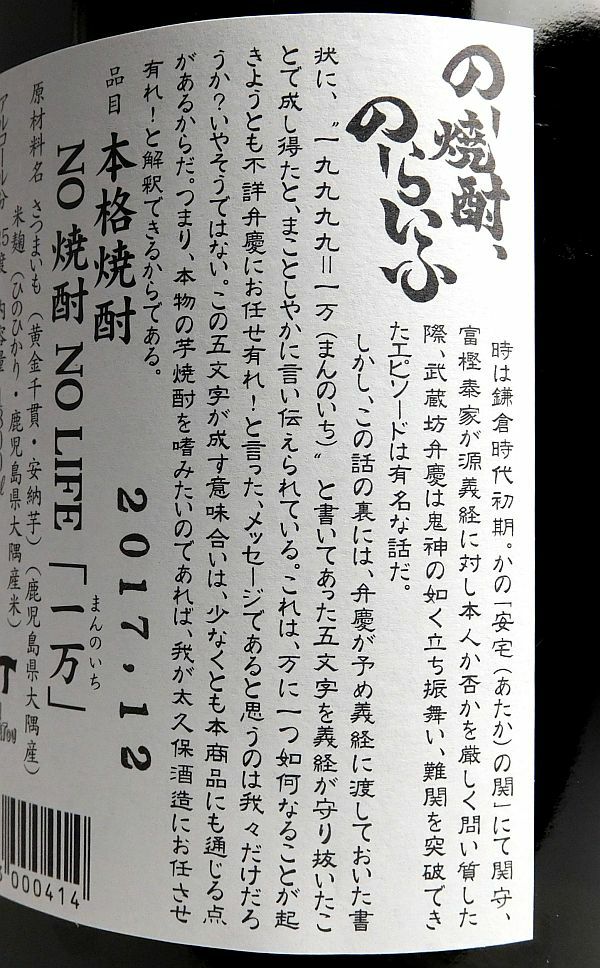 の!焼酎、
のーらいふ
時は鎌倉時代初期。かの「安宅（あたか）の関」にて関守、
富樫泰家が源義経に対し本人か否かを厳しく問い質した
際、武蔵坊弁慶は鬼神の如く立ち振舞い、難関を突破でき
たエピソードは有名な話だ。
しかし、この話の裏には、弁慶が予め義経に渡しておいた書
状に、〝一九九九九＝一万（まんのいち）〟と書いてあった五文字を義経が守り抜いたこ
とで成し得たと、まことしやかに言い伝えられている。これは、万に一つ如何なることが起
きようとも不詳弁慶にお任せ有れ！と言った、メッセージであると思うのは我々だけだろ
うか？いやそうではない。この五文字が成す意味合いは、少なくとも本商品にも通じる点
があるからだ。つまり、本物の芋焼酎を嗜みたいのであれば、我が太久保酒造にお任させ
有れ！と解釈できるからである。
品目 本格焼酎 2017.12
NO 焼酎 NO LIFE 「一万」
まんのいち
原材料名 さつまいも（黄金千貫・安納芋）（鹿児島県大隅産）
米麹（ひのひかり・鹿児島県大隅産米）
アルコール分 25度 内容量 1800ml
000414